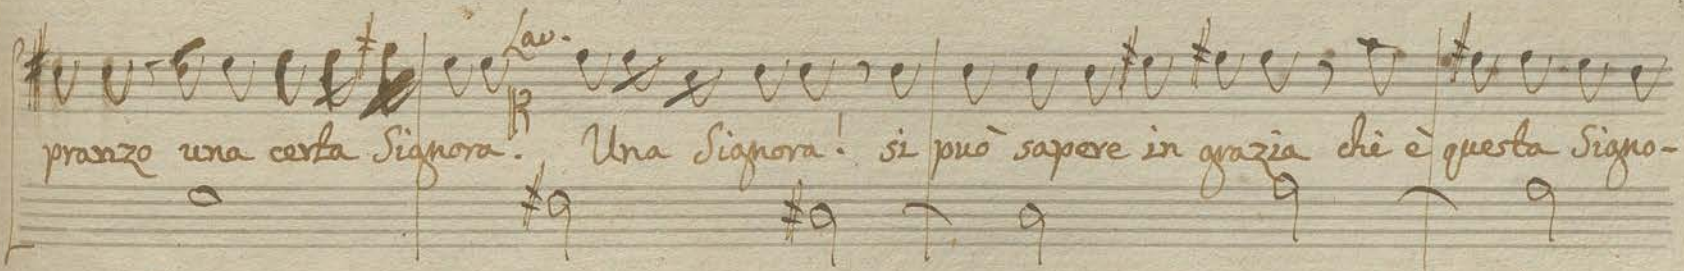 Lav.
pranzo una certa Signora. Una Signora! si può sapere in grazia chi è questa Signo-